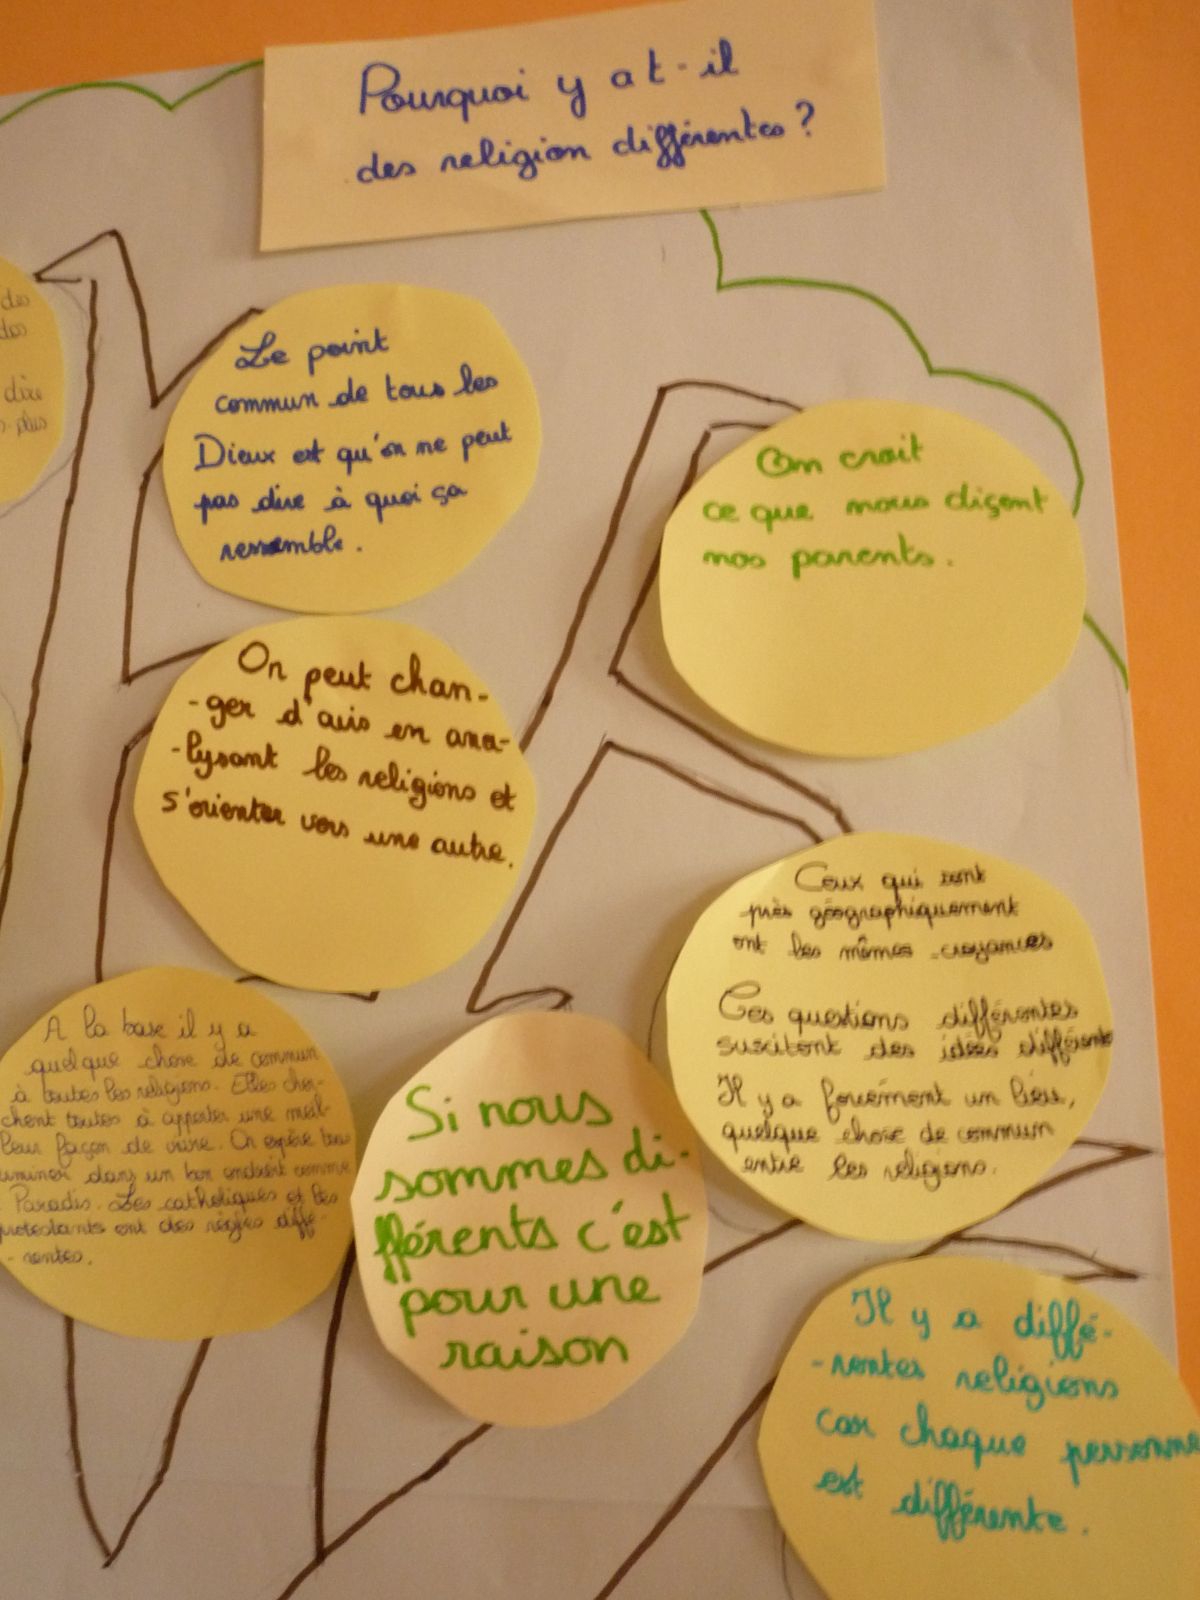 Pourquoi y a t-il
des religion différentes ?
des
dire
plus
Le point
commun de tous les
Dieux est qu'on ne peut
pas dire à quoi ça
ressemble.
On croit
ce que nous diçent
nos parents.
On peut chan-
-ger d'avis en ana-
-lysant les religions et
s'orienter vers une autre.
Ceux qui sont
près géographiquement
ont les mêmes croyances
Ces questions différentes
suscitent des idées différente
Il y a forcément un lien,
quelque chose de commun
entre les religions.
A la base il y a
quelque chose de commun
à toutes les religions. Elles cher-
chent toutes à apporter une meil-
leur façon de vivre. On espère tous
dans un bon endroit comme
Paradis. Les catholiques et les
protestants ont des règles diffé-
-rentes.
Si nous
sommes di-
fférents c'est
pour une
raison
Il y a diffé-
-rentes religions
car chaque personne
est différente.